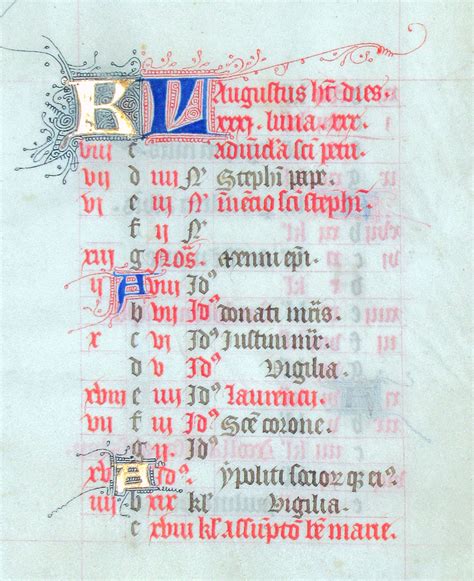 KL Augustus ht dies
xxxi. luna. xxx.
viii c Ad uincła sci petri.
d iiii N' Stephi pape.
vi e iii N' Inuētio sci stephi
f ii N'
g Nos.
ii A viii Id'
b vii Id' donati mris.
x c vi Id' Iustini mr.
d v Id' Vigilia.
xviii e iiii Id' Laurencii.
vii f iii Id' Sce corone.
g ii. Id'
A Id' ypoliti socior
iiii b xix kl' Vigilia.
c xviii kl' assūpto be marie.